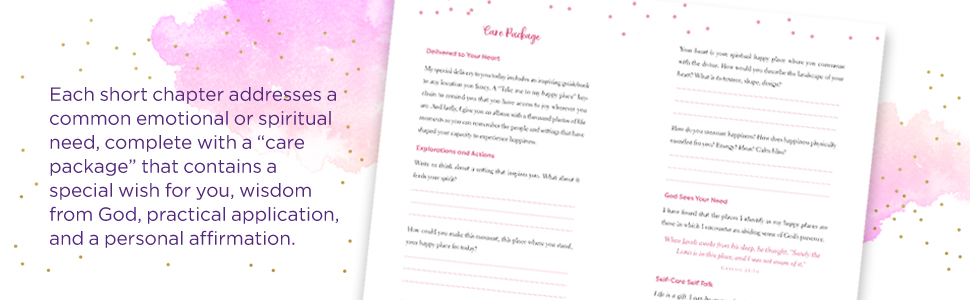 Each short chapter addresses a
common emotional or spiritual
need, complete with a “care
package” that contains a
special wish for you, wisdom
from God, practical application,
and a personal affirmation.
Care Package
Delivered to Your Heart
My special delivery to you today includes an inspiring guidebook
to any location you fancy. A “Take me to my happy place” key
chain to remind you that you have access to joy wherever you
are. And lastly, I give you an album with a thousand photos of life
moments so you can remember the people and settings that have
shaped your capacity to experience happiness.
Explorations and Actions
Write or think about a setting that inspires you. What about it
feeds your spirit?
How could you make this moment, this place where you stand,
your happy place for today?
Your heart is your spiritual happy place where you commune
with the divine. How would you describe the landscape of your
heart? What is its texture, shape, design?
How do you measure happiness? How does happiness physically
manifest for you? Energy? Ideas? Calm bliss?
God Sees Your Need
I have found that the places I identify as my happy places are
those in which I encounter an abiding sense of God's presence.
When Jacob awoke from his sleep, he thought, “Surely the
LORD is in this place, and I was not aware of it.”
GENESIS 28:16
Self-Care Self-Talk
Life is a gift. I can be